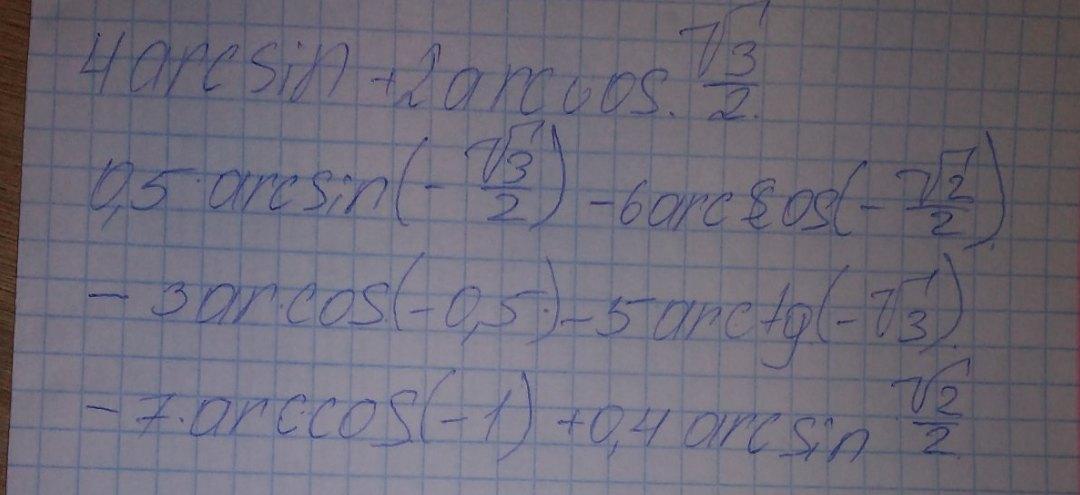 4 arcsin + 2 arccos. √3/2.
0,5 · arcsin(- √3/2) - 6 arccos(- √2/2).
- 3 arcos(-0,5) - 5 arctg(-√3).
- 7 · arccos(-1) + 0,4 arcsin √2/2